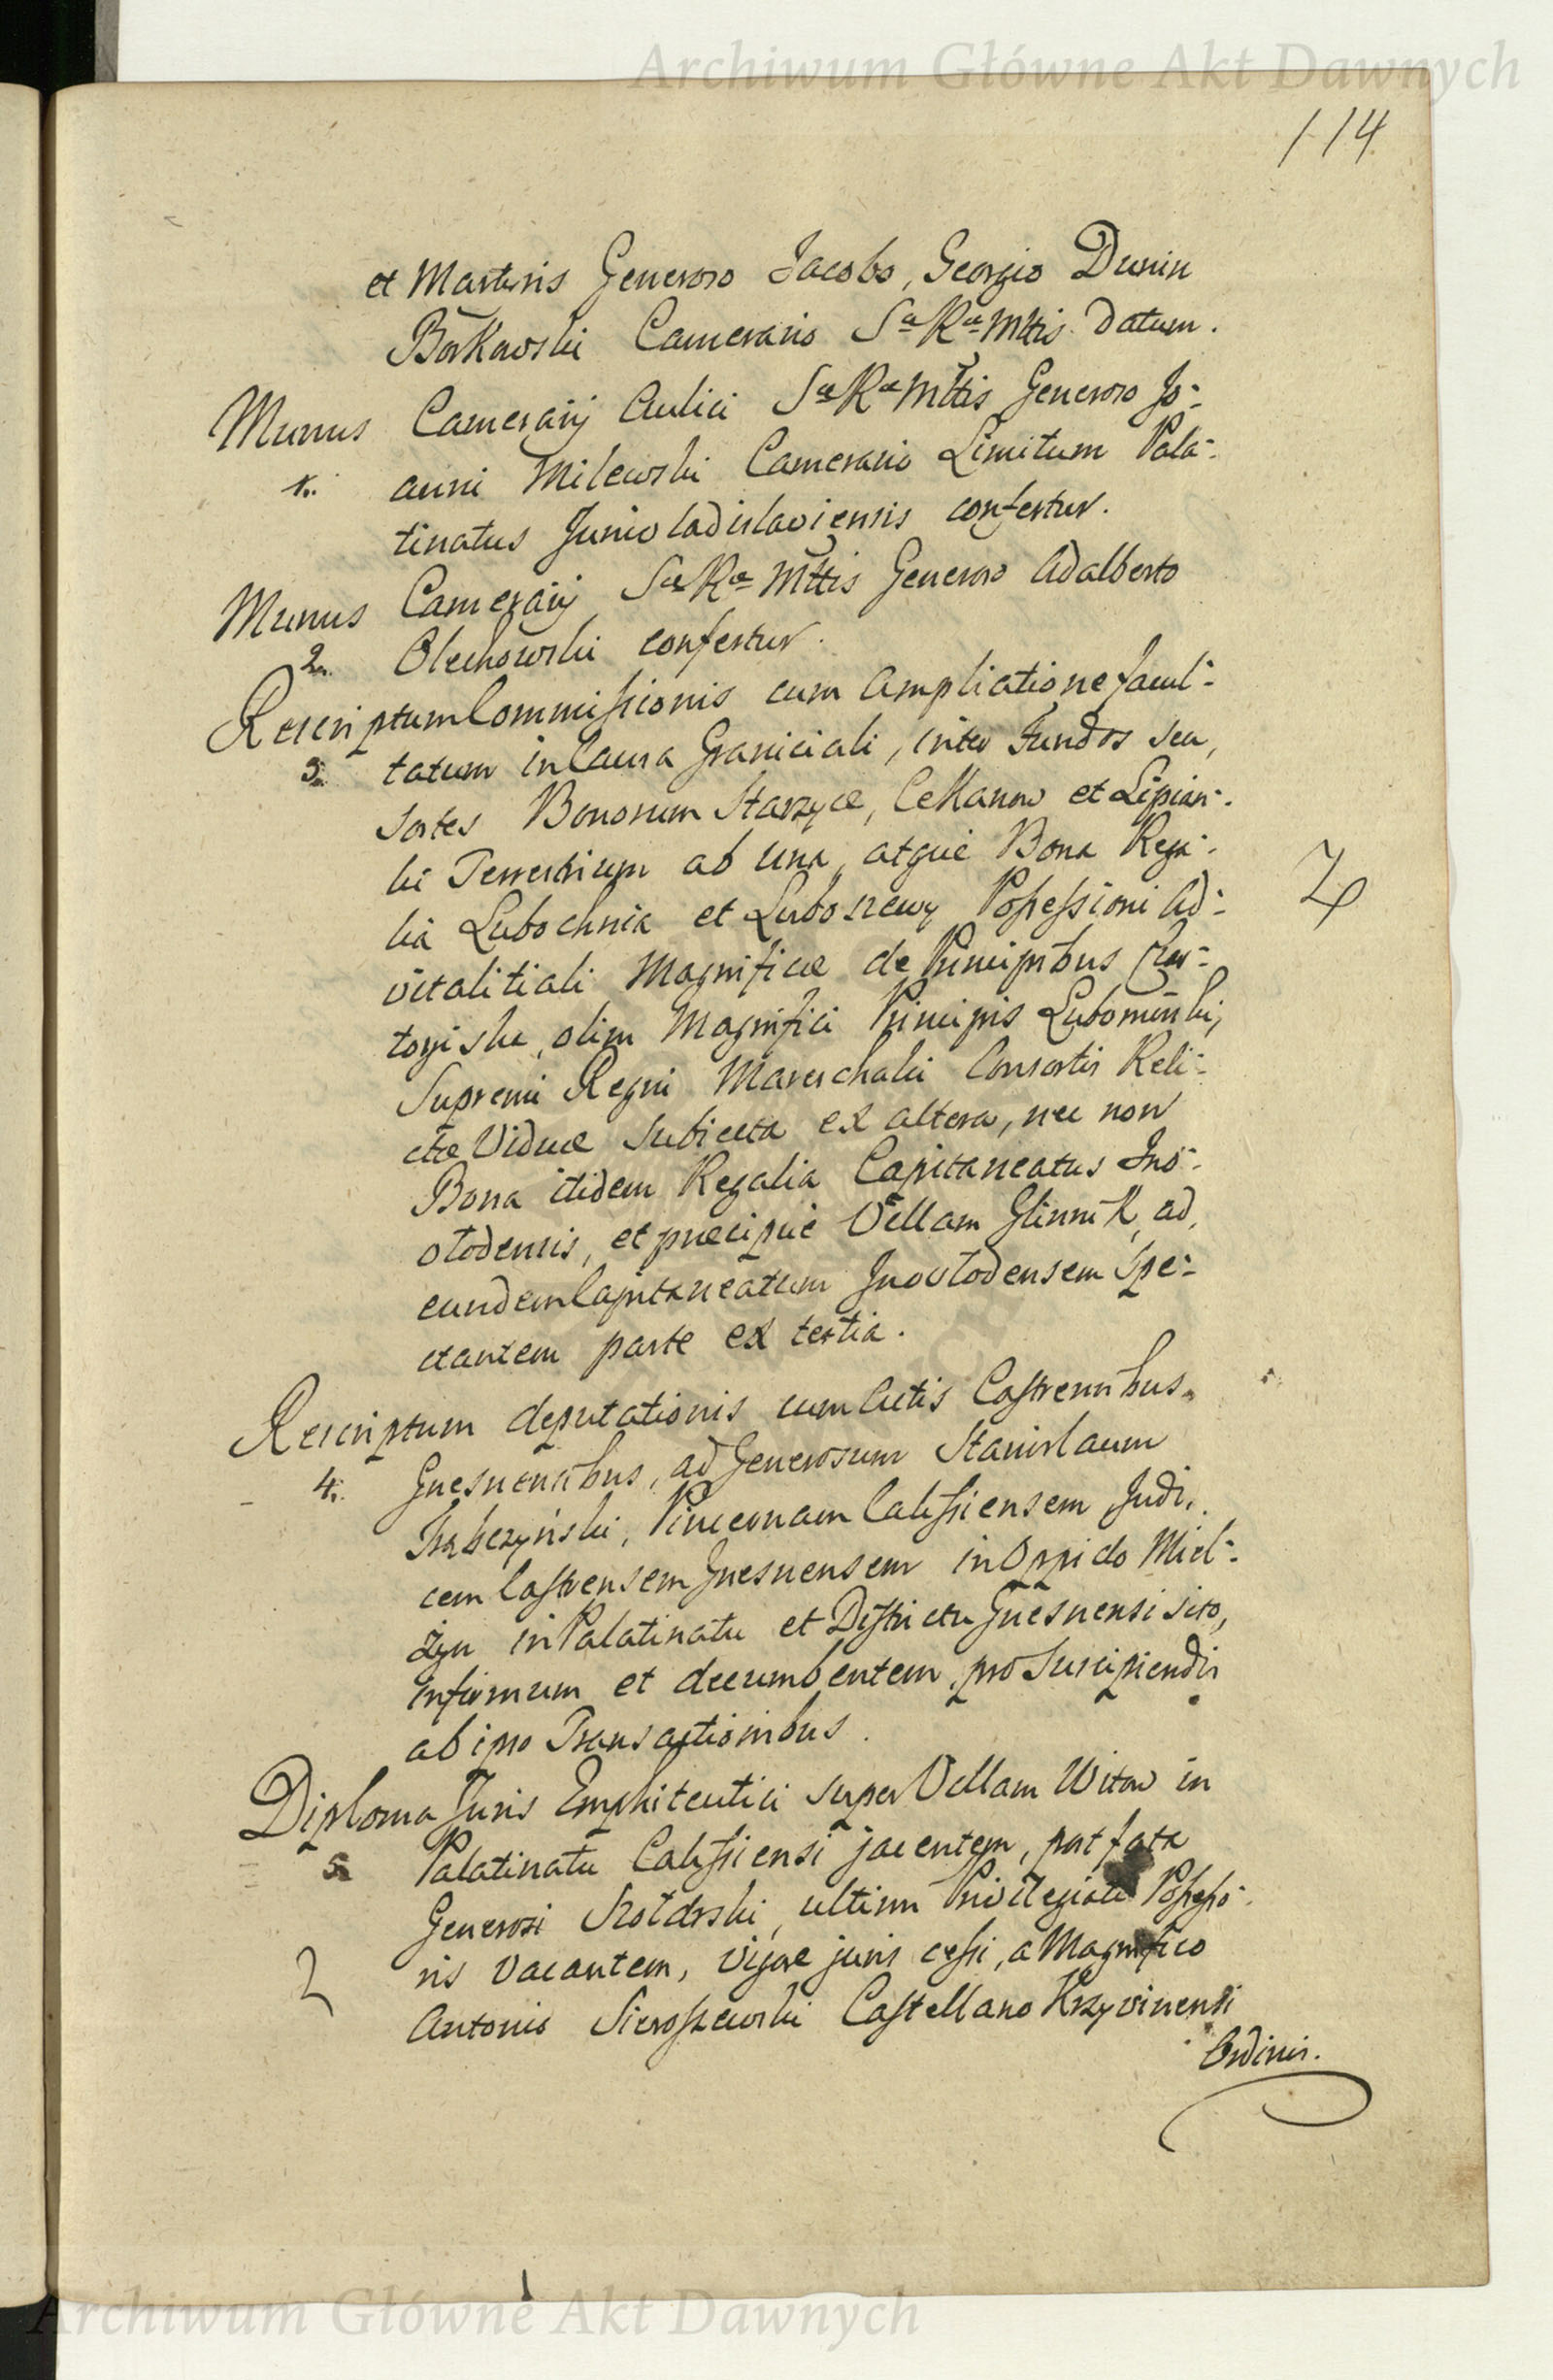 Archiwum Główne Akt Dawnych
114
et Martinis Generoso Jacobo, Georgio Dunin
Borkowski Camerario Sæ Ræ Mttis datum.
Munus Camerarij Aulici Sæ Ræ Mttis Generoso Jo-
1. anni Milewski Camerario Limitum Pala-
tinatus Juniwladislaviensis confertur.
Munus Camerarij Sæ Ræ Mttis Generoso Adalberto
2. Olechowski confertur.
Rescriptum Commissionis cum Ampliatione facul-
3. tatum in Causa Graniciali, inter Fundos seu,
sortes Bonorum Starzyce, Cekanow et Lipian-
ki Terrestrium ab una, atque Bona Rega-
lia Lubochnia et Luboszewy Possessioni Ad-
vitalitiali Magnificæ de Principibus Czar-
toryiska, olim Magnifici Principis Lubomirski,
Supremi Regni Mareschalci Consortis Reli-
ctæ Viduæ subiecta ex altera, nec non
Bona itidem Regalia Capitaneatus Ino-
wlodensis, et præcipue Villam Glinnik, ad,
eundem Capitaneatum Inowlodensem Spe-
ctantem parte ex tertia.
Rescriptum deputationis cum Actis Castrensibus
4. Gnesnensibus, ad Generosum Stanislaum
Trąbczyński, Pincernam Calissiensem Judi,
cem Castrensem Gnesnensem in Oppido Miel-
żyn in Palatinatu et Districtu Gnesnensi sito,
infirmum et decumbentem, pro suscipiendis
ab ipso Transactionibus.
Diploma Juris Emphiteutici super Villam Witow in
5. Palatinatu Calissiensi jacentem, post fata
Generosi Szołdrski, ultimi Privilegiati Possesso-
ris vacantem, vigore juris cessi, a Magnifico
Antonio Sieroszewski Castellano Krzyvinensi
Ordinis.
Archiwum Główne Akt Dawnych